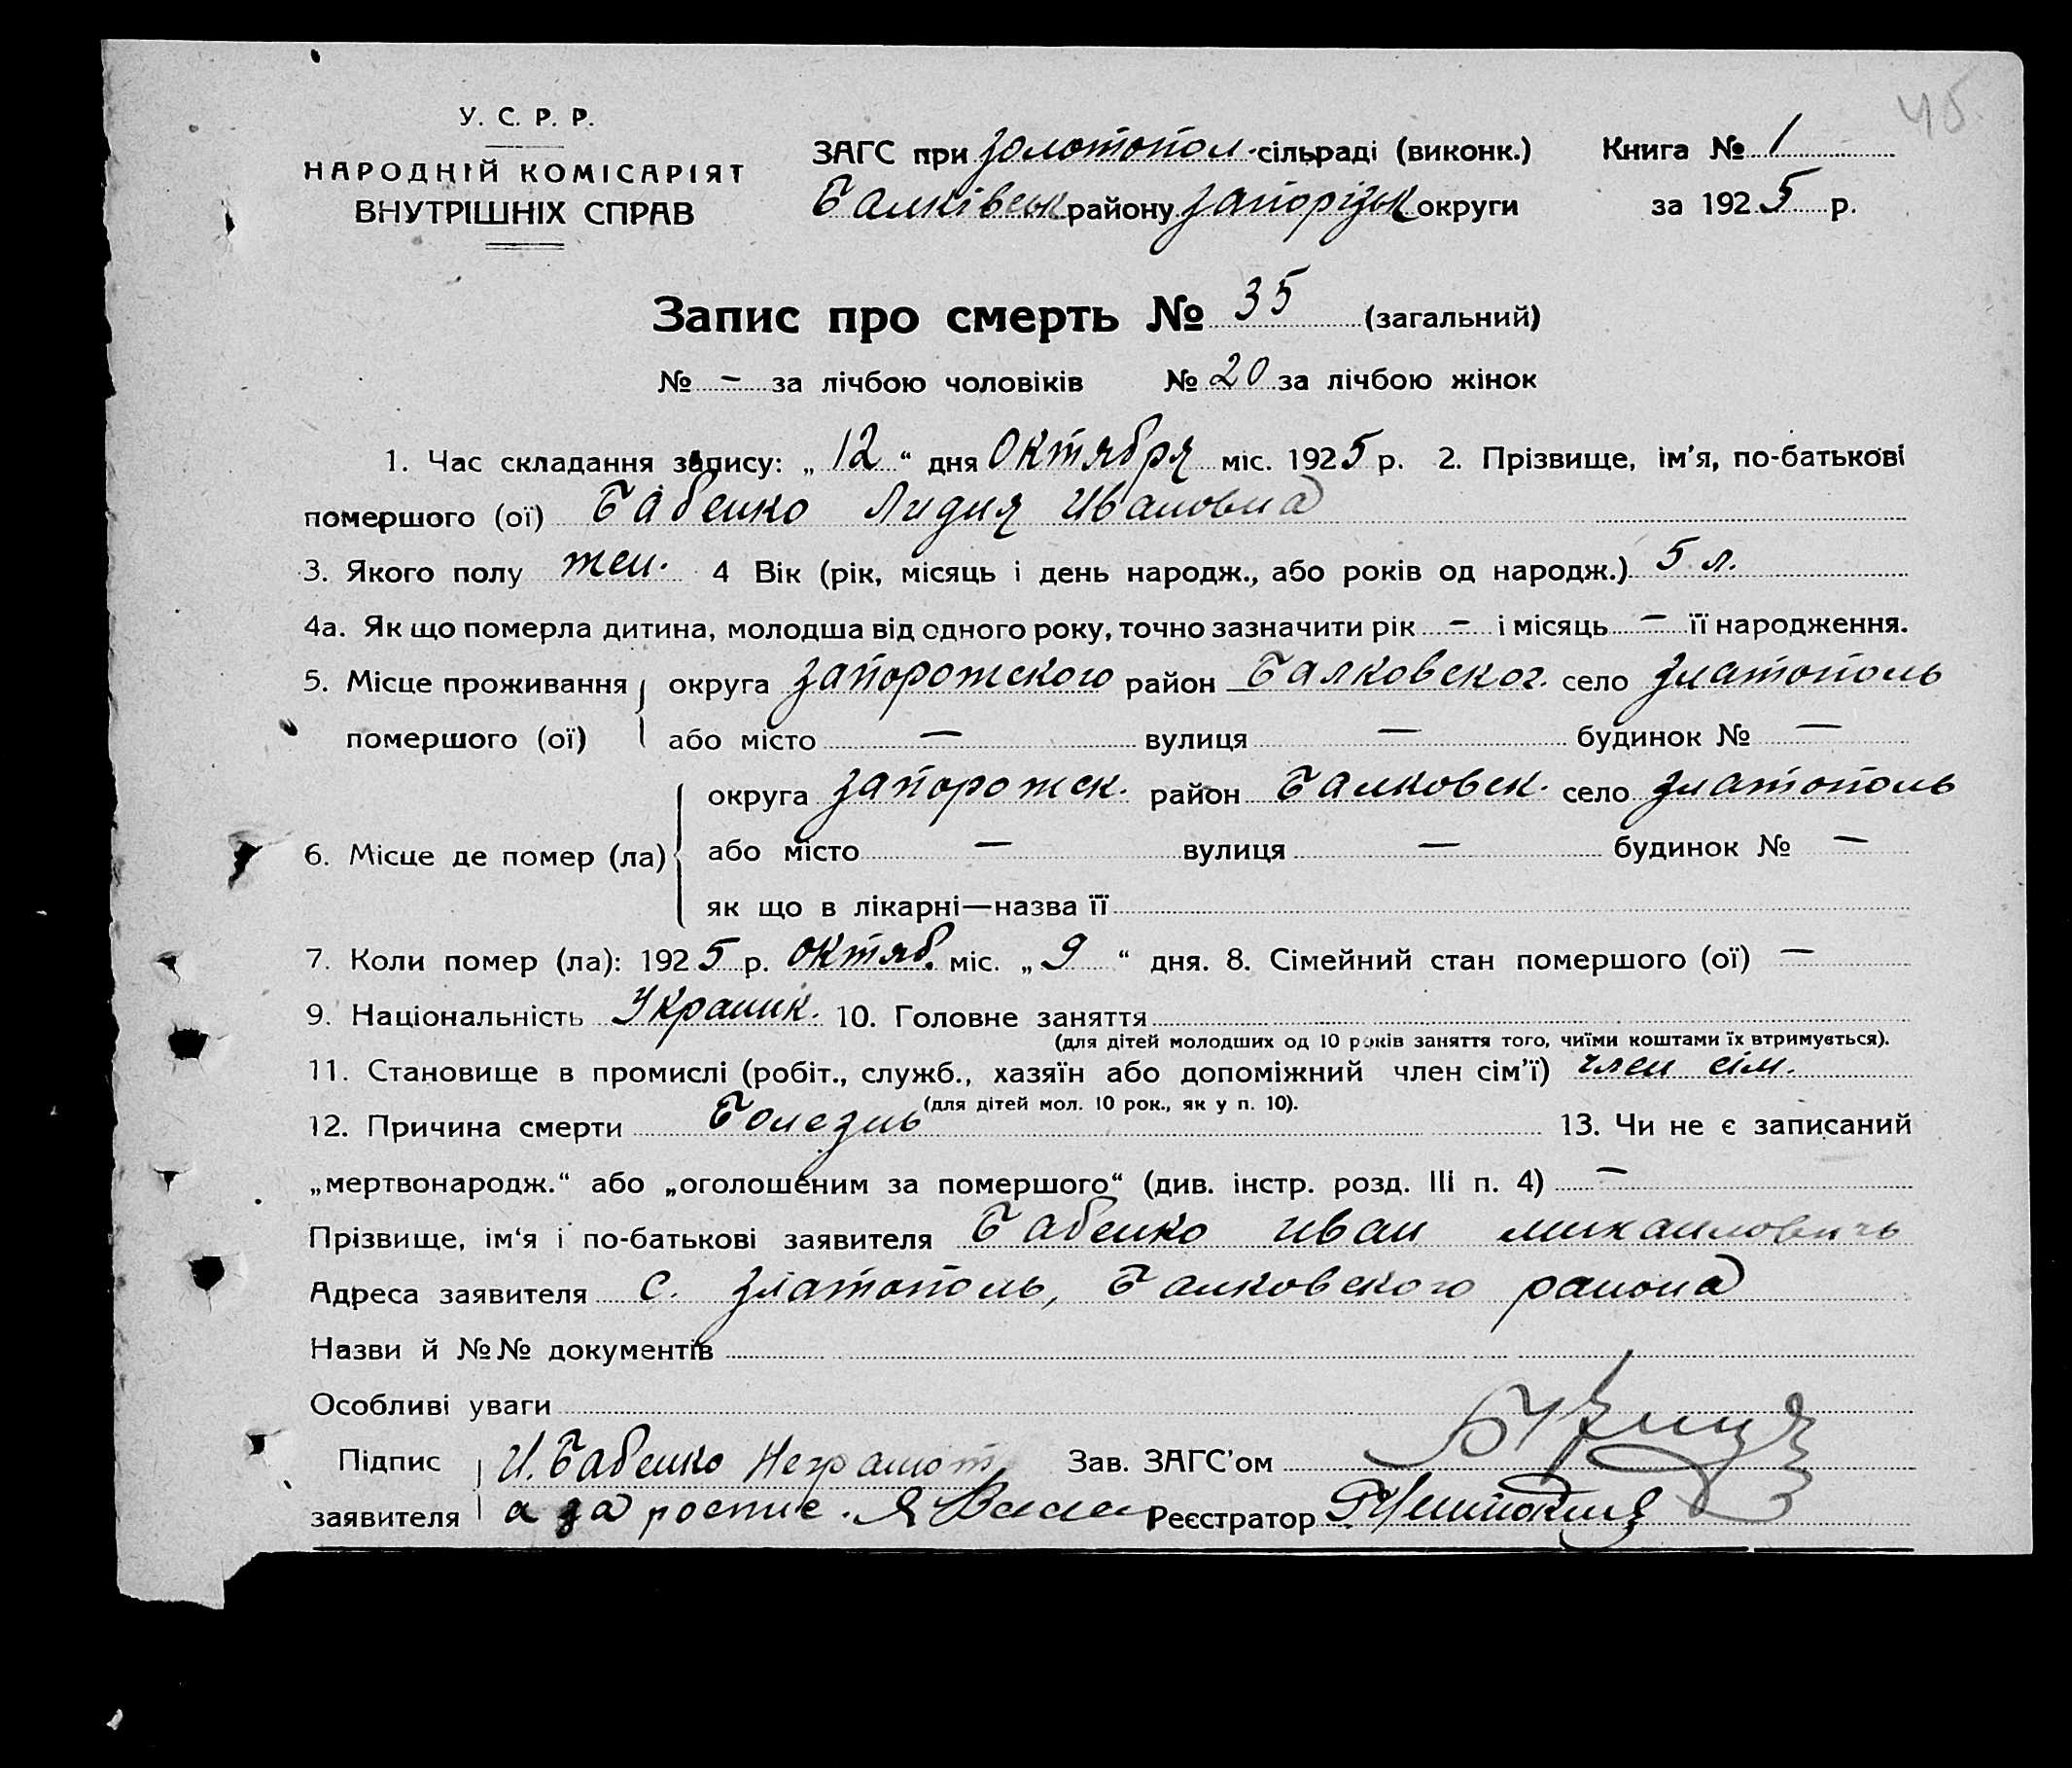 45.
У. С. Р. Р.
НАРОДНІЙ КОМІСАРІЯТ
ВНУТРІШНІХ СПРАВ
ЗАГС при золотопол. сільраді (виконк.) Книга № 1
Балківськ району запорізьк округи за 1925 р.
Запис про смерть № 35 (загальний)
№ – за лічбою чоловіків № 20 за лічбою жінок
1. Час складання запису: „ 12 “ дня Октября міс. 1925 р. 2. Прізвище, ім'я, по-батькові
помершого (ої) Бабенко Лидия Ивановна
3. Якого полу жен. 4 Вік (рік, місяць і день народж., або років од народж.) 5 л.
4а. Як що померла дитина, молодша від одного року, точно зазначити рік – і місяць – її народження.
5. Місце проживання округа запорожского район Балковског. село златополь
помершого (ої) або місто — вулиця — будинок № —
округа запорожск. район Балковск. село златополь
6. Місце де помер (ла) або місто — вулиця — будинок № —
як що в лікарні—назва її
7. Коли помер (ла): 1925 р. октяб. міс. „ 9 “ дня. 8. Сімейний стан помершого (ої) —
9. Національність Украинк. 10. Головне заняття
(для дітей молодших од 10 років заняття того, чиїми коштами їх втримується).
11. Становище в промислі (робіт., служб., хазяїн або допоміжний член сім'ї) член сім.
(для дітей мол. 10 рок., як у п. 10).
12. Причина смерти Болезнь 13. Чи не є записаний
„мертвонародж.“ або „оголошеним за помершого“ (див. інстр. розд. III п. 4) —
Прізвище, ім‘я і по-батькові заявителя Бабенко иван михаиловичь
Адреса заявителя с. златополь, Балковского раиона
Назви й №№ документів
Особливі уваги
Підпис И. Бабенко Неграмот Зав. ЗАГС'ом
заявителя а за роспис. Реєстратор